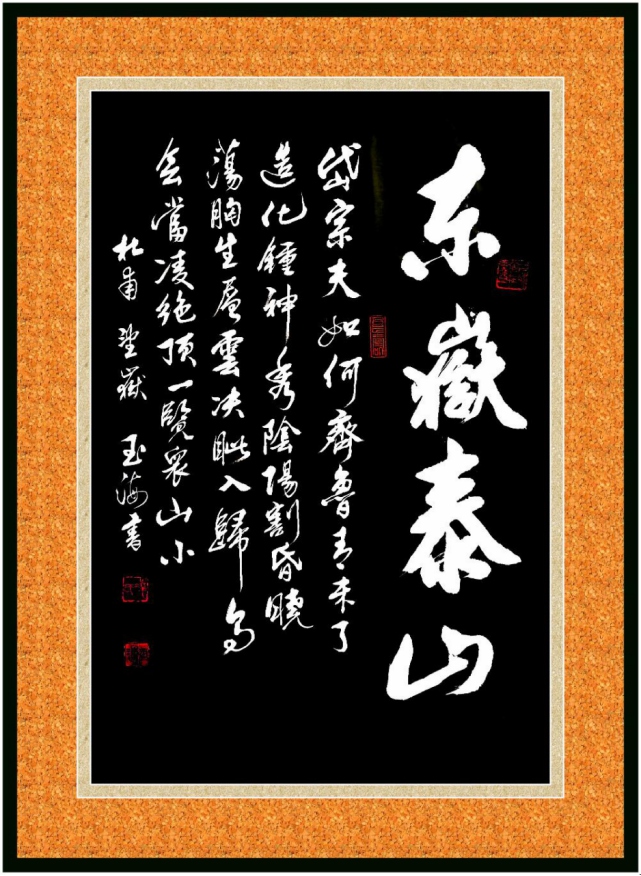 东嶽泰山
岱宗夫如何齊魯青未了
造化鍾神秀陰陽割昏曉
蕩胸生層雲决眦入歸鸟
会當凌绝顶一覽衆山小
杜甫望嶽 玉海书